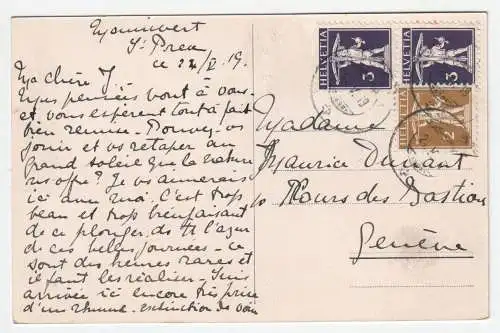 St Prex
ce 22/V. 19.
Ma chère J
Mes pensées vont à vous
et vous espèrent tout à fait
bien remise - Pouvez-vs
jouir et vs retaper au
grand soleil que la nature
ns offre? Je vs aimerais
ici avec moi. C'est trop
beau et trop bienfaisant
de ce plonger ds tt l'azur
de ces belles journées - ce
sont des heures rares et
il faut les réaliser - Suis
arrivée ici encore très prise
d'un rhume - extinction de voix
HELVETIA
3
HELVETIA
3
HELVETIA
2
Madame
Maurice Dunant
Cours des Bastion
Genève